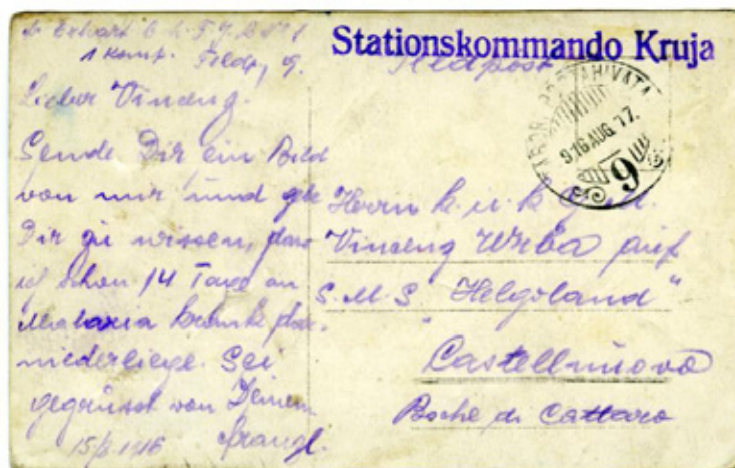 1 Komp. Feldp. 9.
Lieber Vinzenz.
Sende Dir ein Bild
von mir und gebe
Dir zu wissen, dass
ich schon 14 Tage an
Malaria krank dar-
niederliege. Sei
gegrüsst von Deinem
Franzl.
15/8 1916
Stationskommando Kruja
Feldpost
TÁBORI POSTAHIVATAL
916 AUG. 17.
9
Herrn k. u. k.
Vinzenz Wrba auf
S. M. S. "Helgoland"
Castellnuovo
Boche di Cattaro